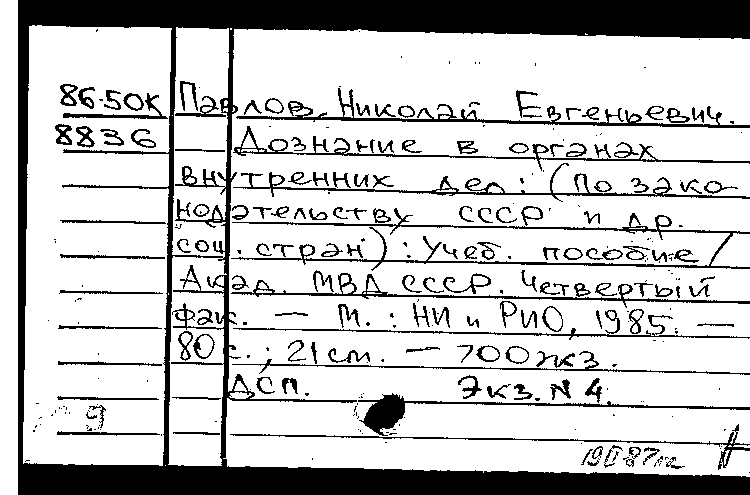 86-50К Павлов, Николай Евгеньевич.
8836 Дознание в органах
внутренних дел: (По зако-
нодательству СССР и др.
соц. стран) : Учеб. пособие /
Акад. МВД СССР. Четвертый
фак. — М. : НИ и РИО, 1985. —
80 с. ; 21 см. — 700 экз.
ДСП. Экз. N 4.
9